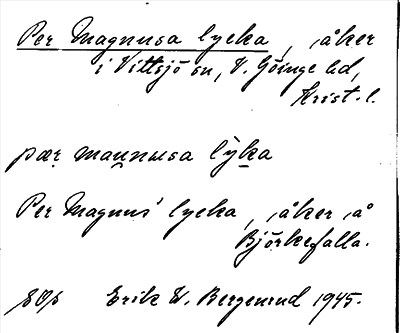 Per Magnusa lycka, åker
i Vittsjö sn, V. Göinge hd,
Krist. l.
pær maunusa lyka
Per Magnus' lycka, åker å
Björkefalla.
Erik W. Bergenrud 1945.